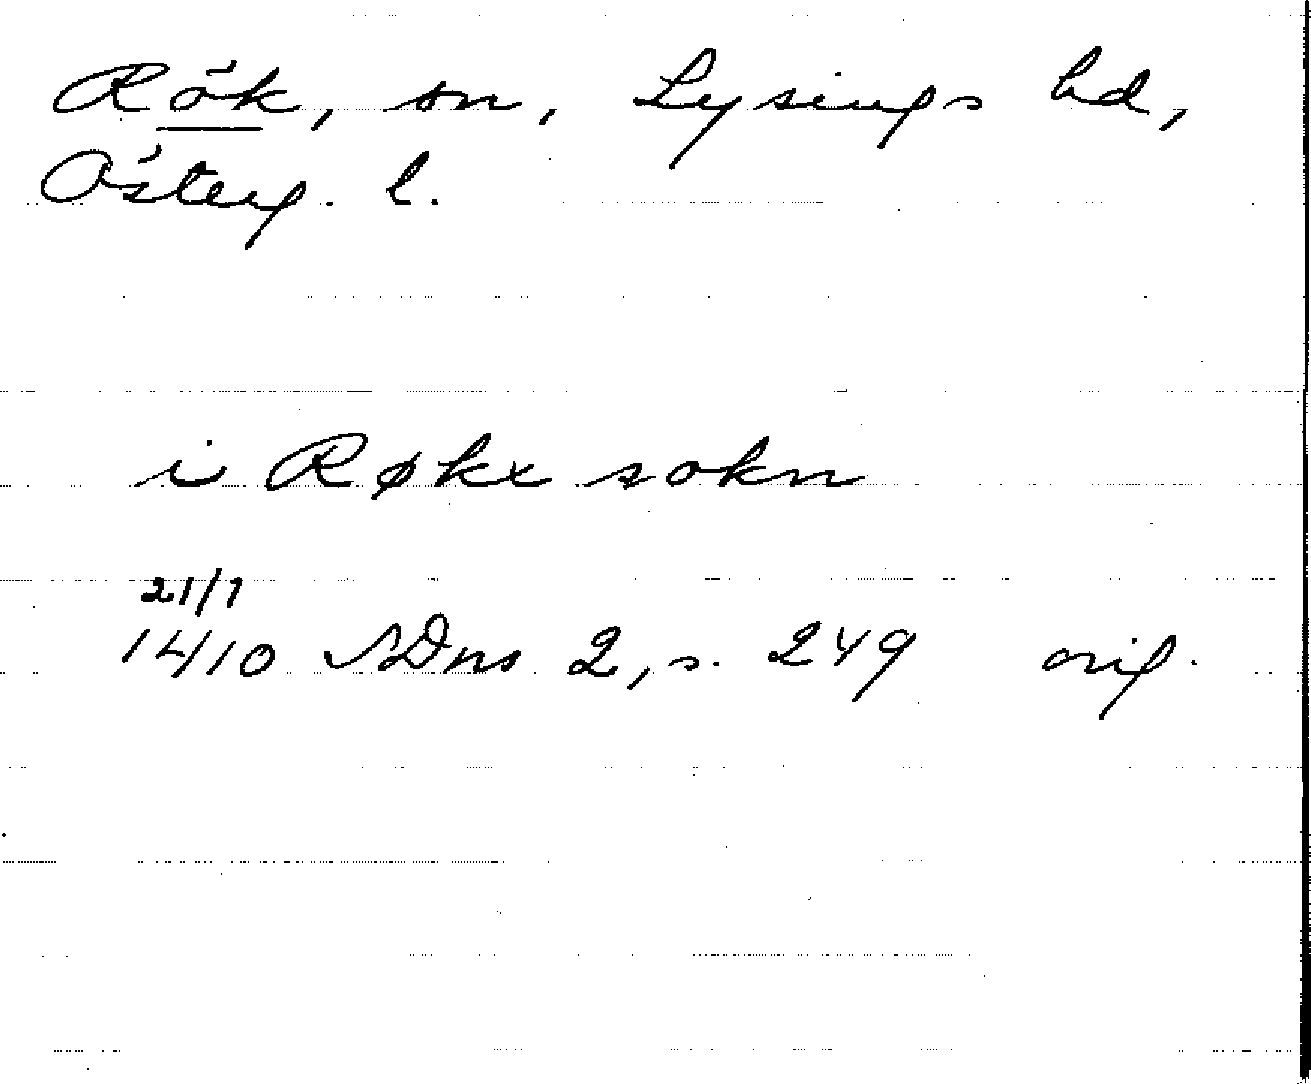 Rök, sn, Lysings hd,
Österg. l.
i Røkx sokn
21/1
1410 SDns 2, s. 249 orig.